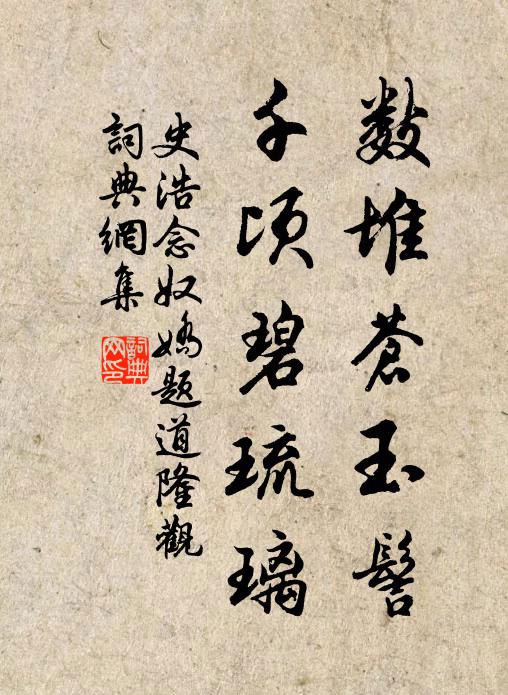 數堆蒼玉髻
千頃碧琉璃
史浩念奴嬌題道隆觀
詞典網集
詞典網印